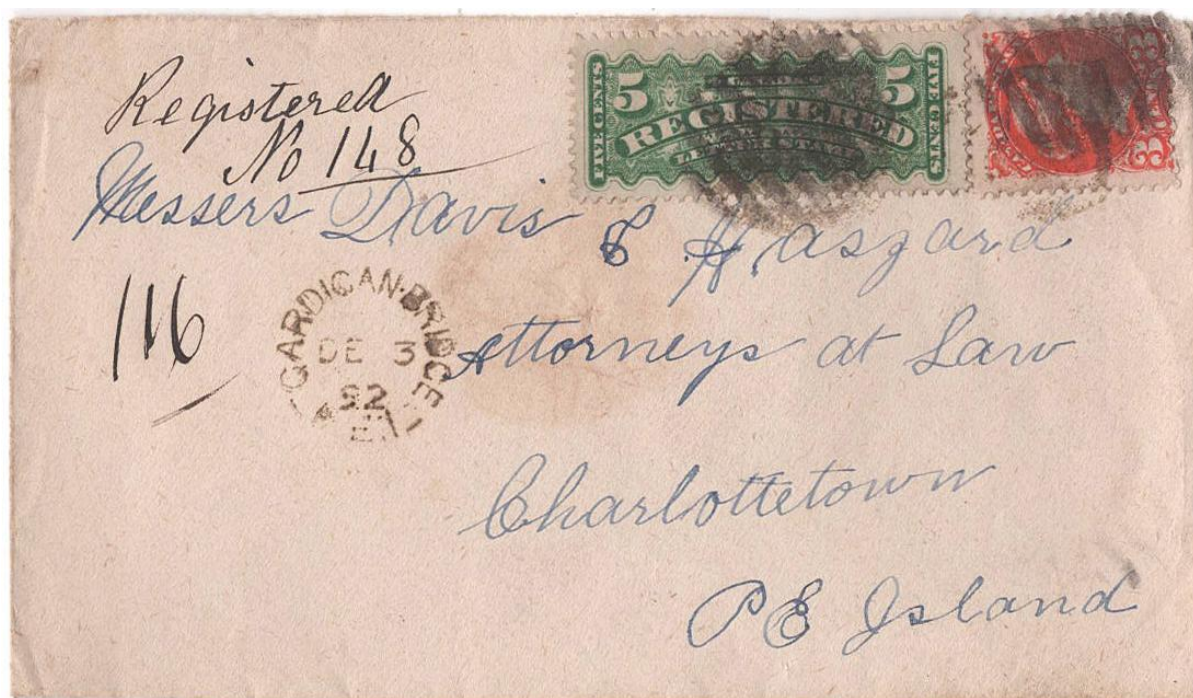 Registered
No 148
5 REGISTERED 5
LETTER STAMP
FIVE CENTS
FIVE CENTS
3 3
Messers Davis & Haszard
116
CARDIGAN-BRIDGE
DE 3
92
P.E.I
Attorneys at Law
Charlottetown
P E Island